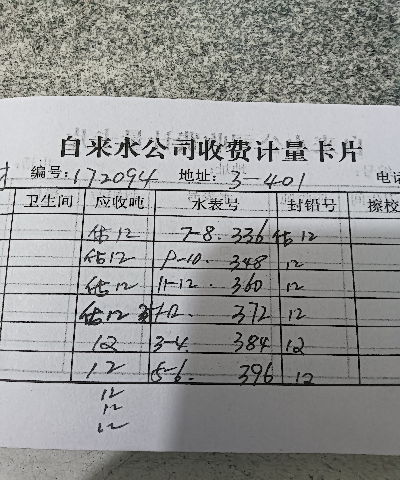 自来水公司收费计量卡片
编号:172094 地址:3-401 电话
卫生间 应收吨 水表号 封铅号 擦校
估12 7-8. 336 估12
估12 9-10. 348 12
估12 11-12. 360 12
估12 372 12
12 3-4. 384 12
12 5-6. 396 12
12
12
12